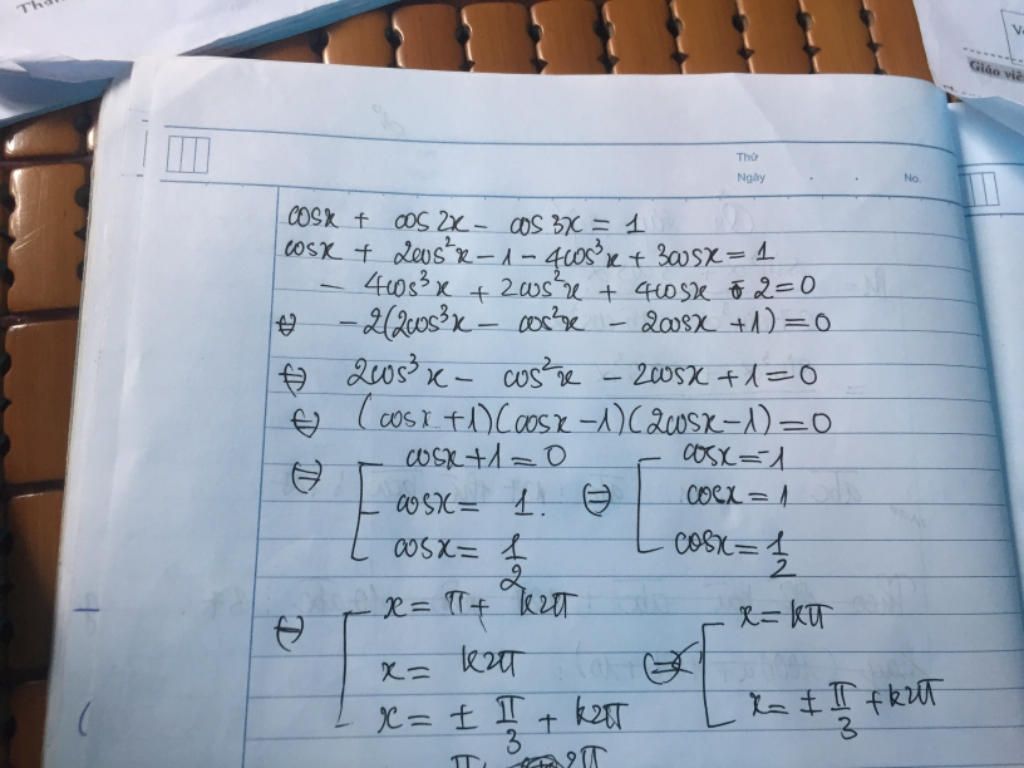 Giáo viê
Thứ
Ngày . . No.
cosx + cos2x - cos3x = 1
cosx + 2cos²x - 1 - 4cos³x + 3cosx = 1
- 4cos³x + 2cos²x + 4cosx - 2 = 0
⇔ -2(2cos³x - cos²x - 2cosx + 1) = 0
⇔ 2cos³x - cos²x - 2cosx + 1 = 0
⇔ (cosx + 1)(cosx - 1)(2cosx - 1) = 0
⇔ [ cosx + 1 = 0 ⇔ [ cosx = -1
cosx = 1. cosx = 1
cosx = 1/2 cosx = 1/2
⇔ [ x = π + k2π ⇔ [ x = kπ
x = k2π
x = ± π/3 + k2π x = ± π/3 + k2π